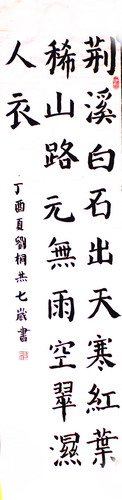 荆溪白石出天寒紅葉
稀山路元無雨空翠濕
人衣
丁酉夏劉桐燕七歲書